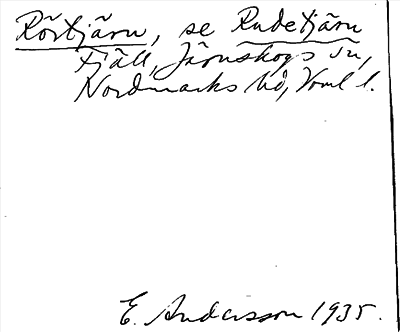 Rörtjärn, se Rudetjärn
Fjäll, Järnskogs sn,
Nordmarks hd, Vrml l.
E. Andersson 1935.